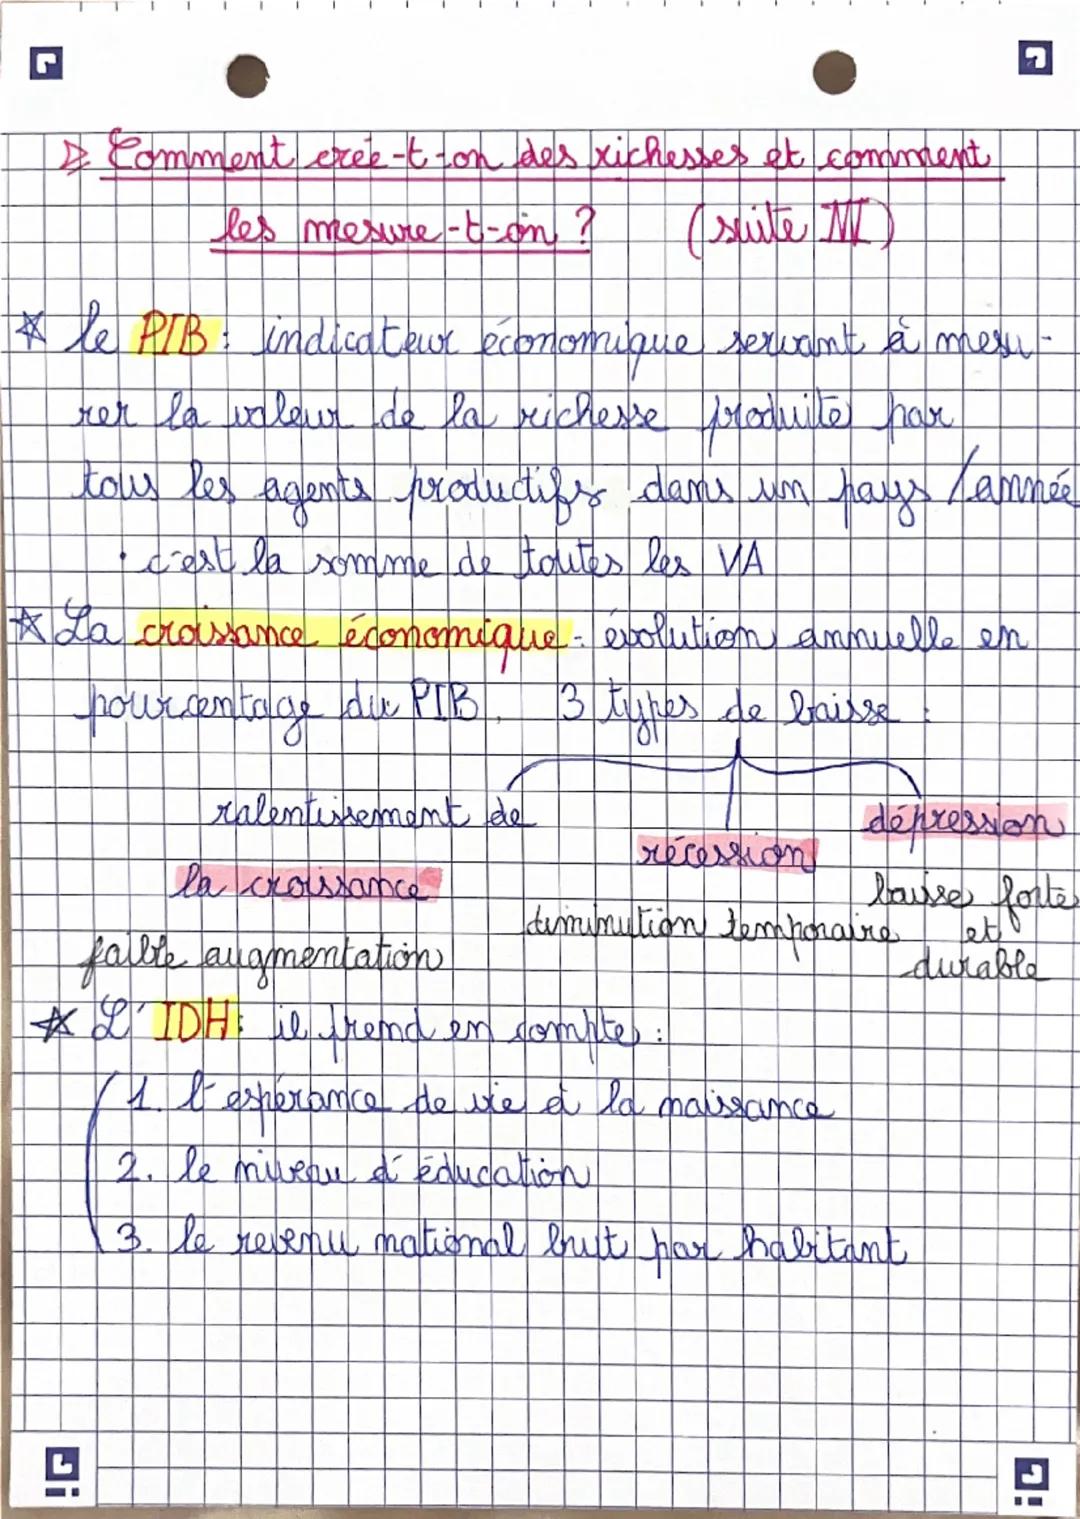 Comment crée-t-on des richesses et comment
les mesure-t-on ? (suite III)
le PIB : indicateur économique servant à mesu-
rer la valeur de la richesse produite par
tous les agents productifs dans un pays /année
• c'est la somme de toutes les VA
La croissance économique : évolution annuelle en
pourcentage du PIB. 3 types de baisse :
ralentissement de
la croissance
faible augmentation
récession
diminution temporaire
dépression
baisse forte
et
durable
L'IDH : il prend en compte :
1. l'espérance de vie à la naissance
2. le niveau d'éducation
3. le revenu national brut par habitant